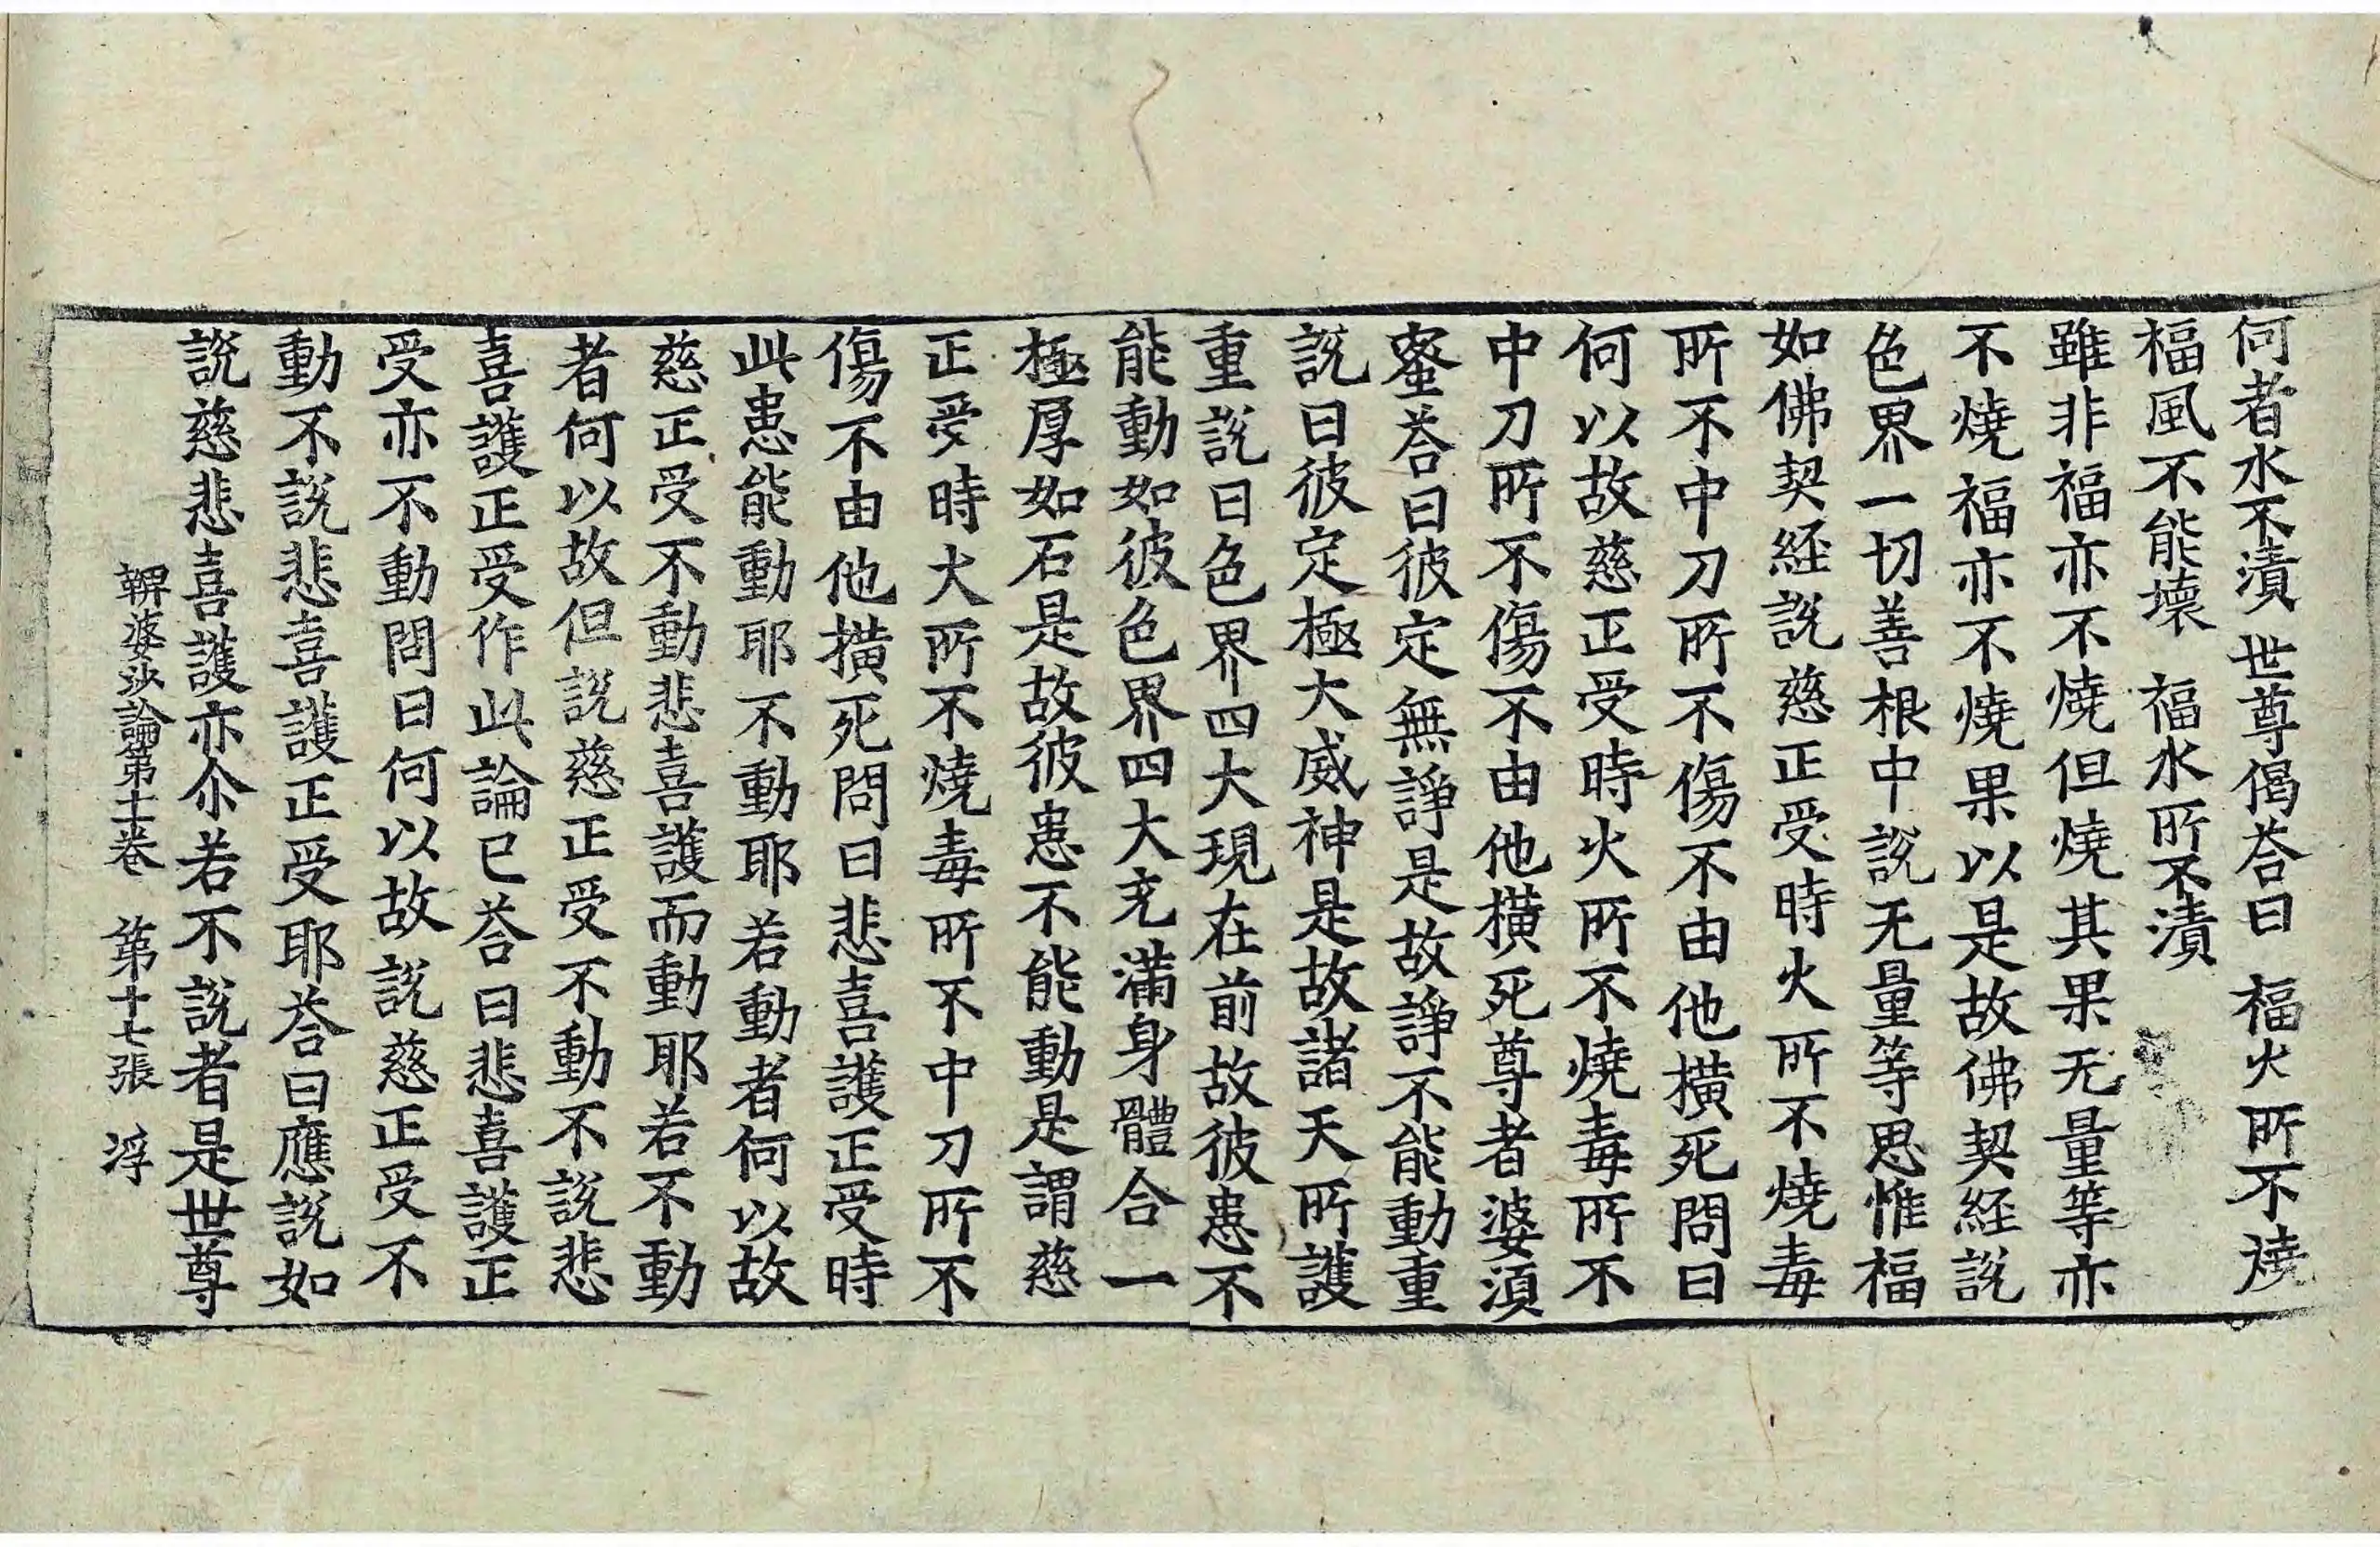 何者水不漬 世尊偈荅曰 福火所不燒
福風不能壞 福水所不漬
雖非福亦不燒但燒其果无量等亦
不燒福亦不燒果以是故佛契経說
色界一切善根中說无量等思惟福
如佛契経說慈正受時火所不燒毒
所不中刀所不傷不由他横死問曰
何以故慈正受時火所不燒毒所不
中刀所不傷不由他横死尊者婆須
蜜荅曰彼定無諍是故諍不能動重
說曰彼定極大威神是故諸天所護
重說曰色界四大現在前故彼患不
能動如彼色界四大充滿身體合一
極厚如石是故彼患不能動是謂慈
正受時火所不燒毒所不中刀所不
傷不由他横死問曰悲喜護正受時
此患能動耶不動耶若動者何以故
慈正受不動悲喜護而動耶若不動
者何以故但說慈正受不動不說悲
喜護正受作此論已荅曰悲喜護正
受亦不動問曰何以故說慈正受不
動不說悲喜護正受耶荅曰應說如
說慈悲喜護亦尒若不說者是世尊
鞞婆沙論第十二卷 第十七張 浮